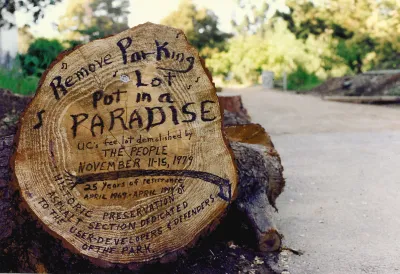 Remove Parking
Lot
Pot in a
PARADISE
UC's fee lot demolished by
THE PEOPLE
NOVEMBER 11-15, 1979
25 Years of
APRIL 1969 - APRIL
HISTORIC PRESERVATION OF
SECTION DEDICATED
TO THE USER-DEVELOPERS & DEFENDERS
OF THE PARK